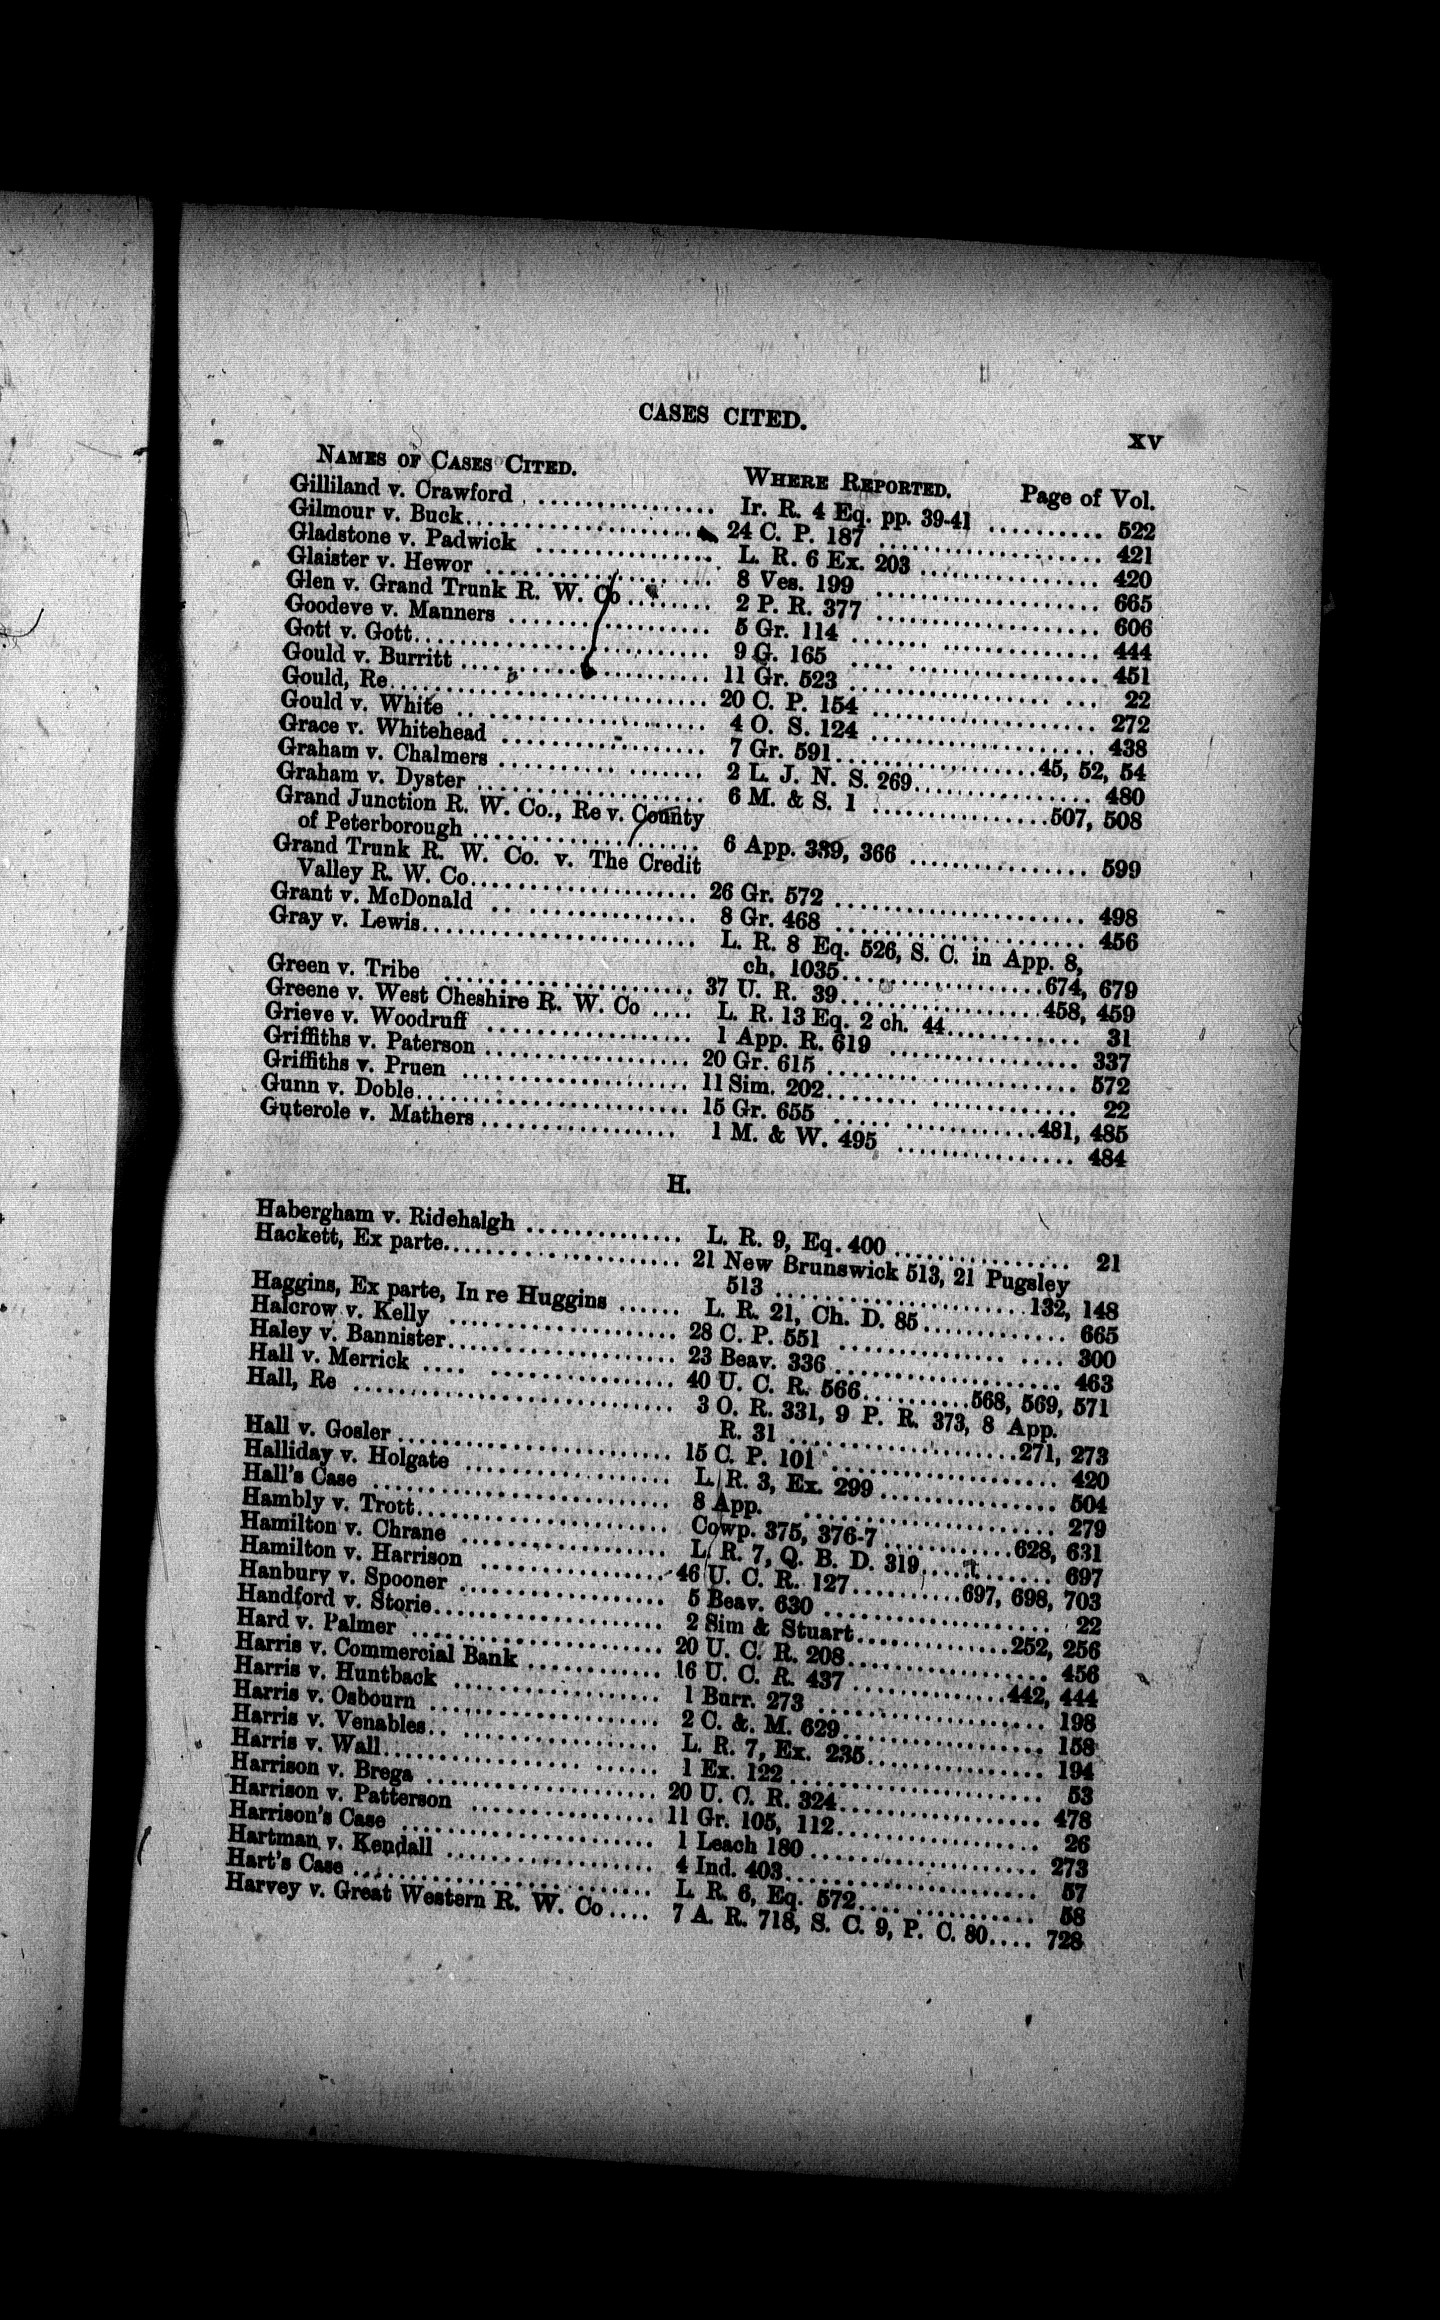 CASES CITED.
XV
NAMES OF CASES CITED. WHERE REPORTED. Page of Vol.
Gilliland v. Crawford ................ Ir. R. 4 Eq. pp. 39-41 .......... 522
Gilmour v. Buck...................... 24 C. P. 187 ...................... 421
Gladstone v. Padwick ................ L. R. 6 Ex. 203 ................ 420
Glaister v. Hewor .................... 8 Ves. 199 .................... 665
Glen v. Grand Trunk R. W. Co ........ 2 P. R. 377 .................... 606
Goodeve v. Manners .................. 5 Gr. 114 ...................... 444
Gott v. Gott.......................... 9 G. 165 ...................... 451
Gould v. Burritt ...................... 11 Gr. 523 ...................... 22
Gould, Re............................ 20 C. P. 154 .................... 272
Gould v. White ...................... 4 O. S. 124 .................... 438
Grace v. Whitehead .................. 7 Gr. 591..................45, 52, 54
Graham v. Chalmers .................. 2 L. J. N. S. 269................ 480
Graham v. Dyster .................... 6 M. & S. 1 ................507, 508
Grand Junction R. W. Co., Re v. County
of Peterborough .................... 6 App. 339, 366 ................ 599
Grand Trunk R. W. Co. v. The Credit
Valley R. W. Co.................... 26 Gr. 572 ...................... 498
Grant v. McDonald .................. 8 Gr. 468 ...................... 456
Gray v. Lewis........................ L. R. 8 Eq. 526, S. C. in App. 8,
ch. 1035..................674, 679
Green v. Tribe ...................... 37 U. R. 39..................458, 459
Greene v. West Cheshire R. W. Co .... L. R. 13 Eq. 2 ch. 44............ 31
Grieve v. Woodruff .................. 1 App. R. 619 .................. 337
Griffiths v. Paterson .................. 20 Gr. 615 ...................... 572
Griffiths v. Pruen .................... 11 Sim. 202...................... 22
Gunn v. Doble........................ 15 Gr. 655 ..................481, 485
Guterole v. Mathers.................. 1 M. & W. 495 ................ 484
H.
Habergham v. Ridehalgh .............. L. R. 9, Eq. 400 ................ 21
Hackett, Ex parte.................... 21 New Brunswick 513, 21 Pugsley
513 ......................132, 148
Haggins, Ex parte, In re Huggins ...... L. R. 21, Ch. D. 85.............. 665
Halcrow v. Kelly .................... 28 C. P. 551 .................... 300
Haley v. Bannister.................... 23 Beav. 336 .................... 463
Hall v. Merrick ...................... 40 U. C. R. 566..........568, 569, 571
Hall, Re ............................ 3 O. R. 331, 9 P. R. 373, 8 App.
R. 31 ......................271, 273
Hall v. Gosler ........................ 15 C. P. 101 .................... 420
Halliday v. Holgate .................. L. R. 3, Ex. 299 ................ 504
Hall's Case .......................... 8 App. ........................ 279
Hambly v. Trott...................... Cowp. 375, 376-7 ............628, 631
Hamilton v. Chrane .................. L. R. 7, Q. B. D. 319............ 697
Hamilton v. Harrison ................ 46 U. C. R. 127..........697, 698, 703
Hanbury v. Spooner .................. 5 Beav. 630 .................... 22
Handford v. Storie.................... 2 Sim & Stuart..............252, 256
Hard v. Palmer ...................... 20 U. C. R. 208.................. 456
Harris v. Commercial Bank ............ 16 U. C. R. 437 ..............442, 444
Harris v. Huntback .................. 1 Burr. 273 .................... 198
Harris v. Osbourn .................... 2 C. &. M. 629.................. 158
Harris v. Venables.................... L. R. 7, Ex. 235................ 194
Harris v. Wall........................ 1 Ex. 122 ...................... 53
Harrison v. Brega .................... 20 U. C. R. 324.................. 478
Harrison v. Patterson ................ 11 Gr. 105, 112.................. 26
Harrison's Case ...................... 1 Leach 180 .................... 273
Hartman v. Kendall .................. 4 Ind. 403...................... 57
Hart's Case .......................... L. R. 6, Eq. 572................ 58
Harvey v. Great Western R. W. Co .... 7 A. R. 718, S. C. 9, P. C. 80.... 728